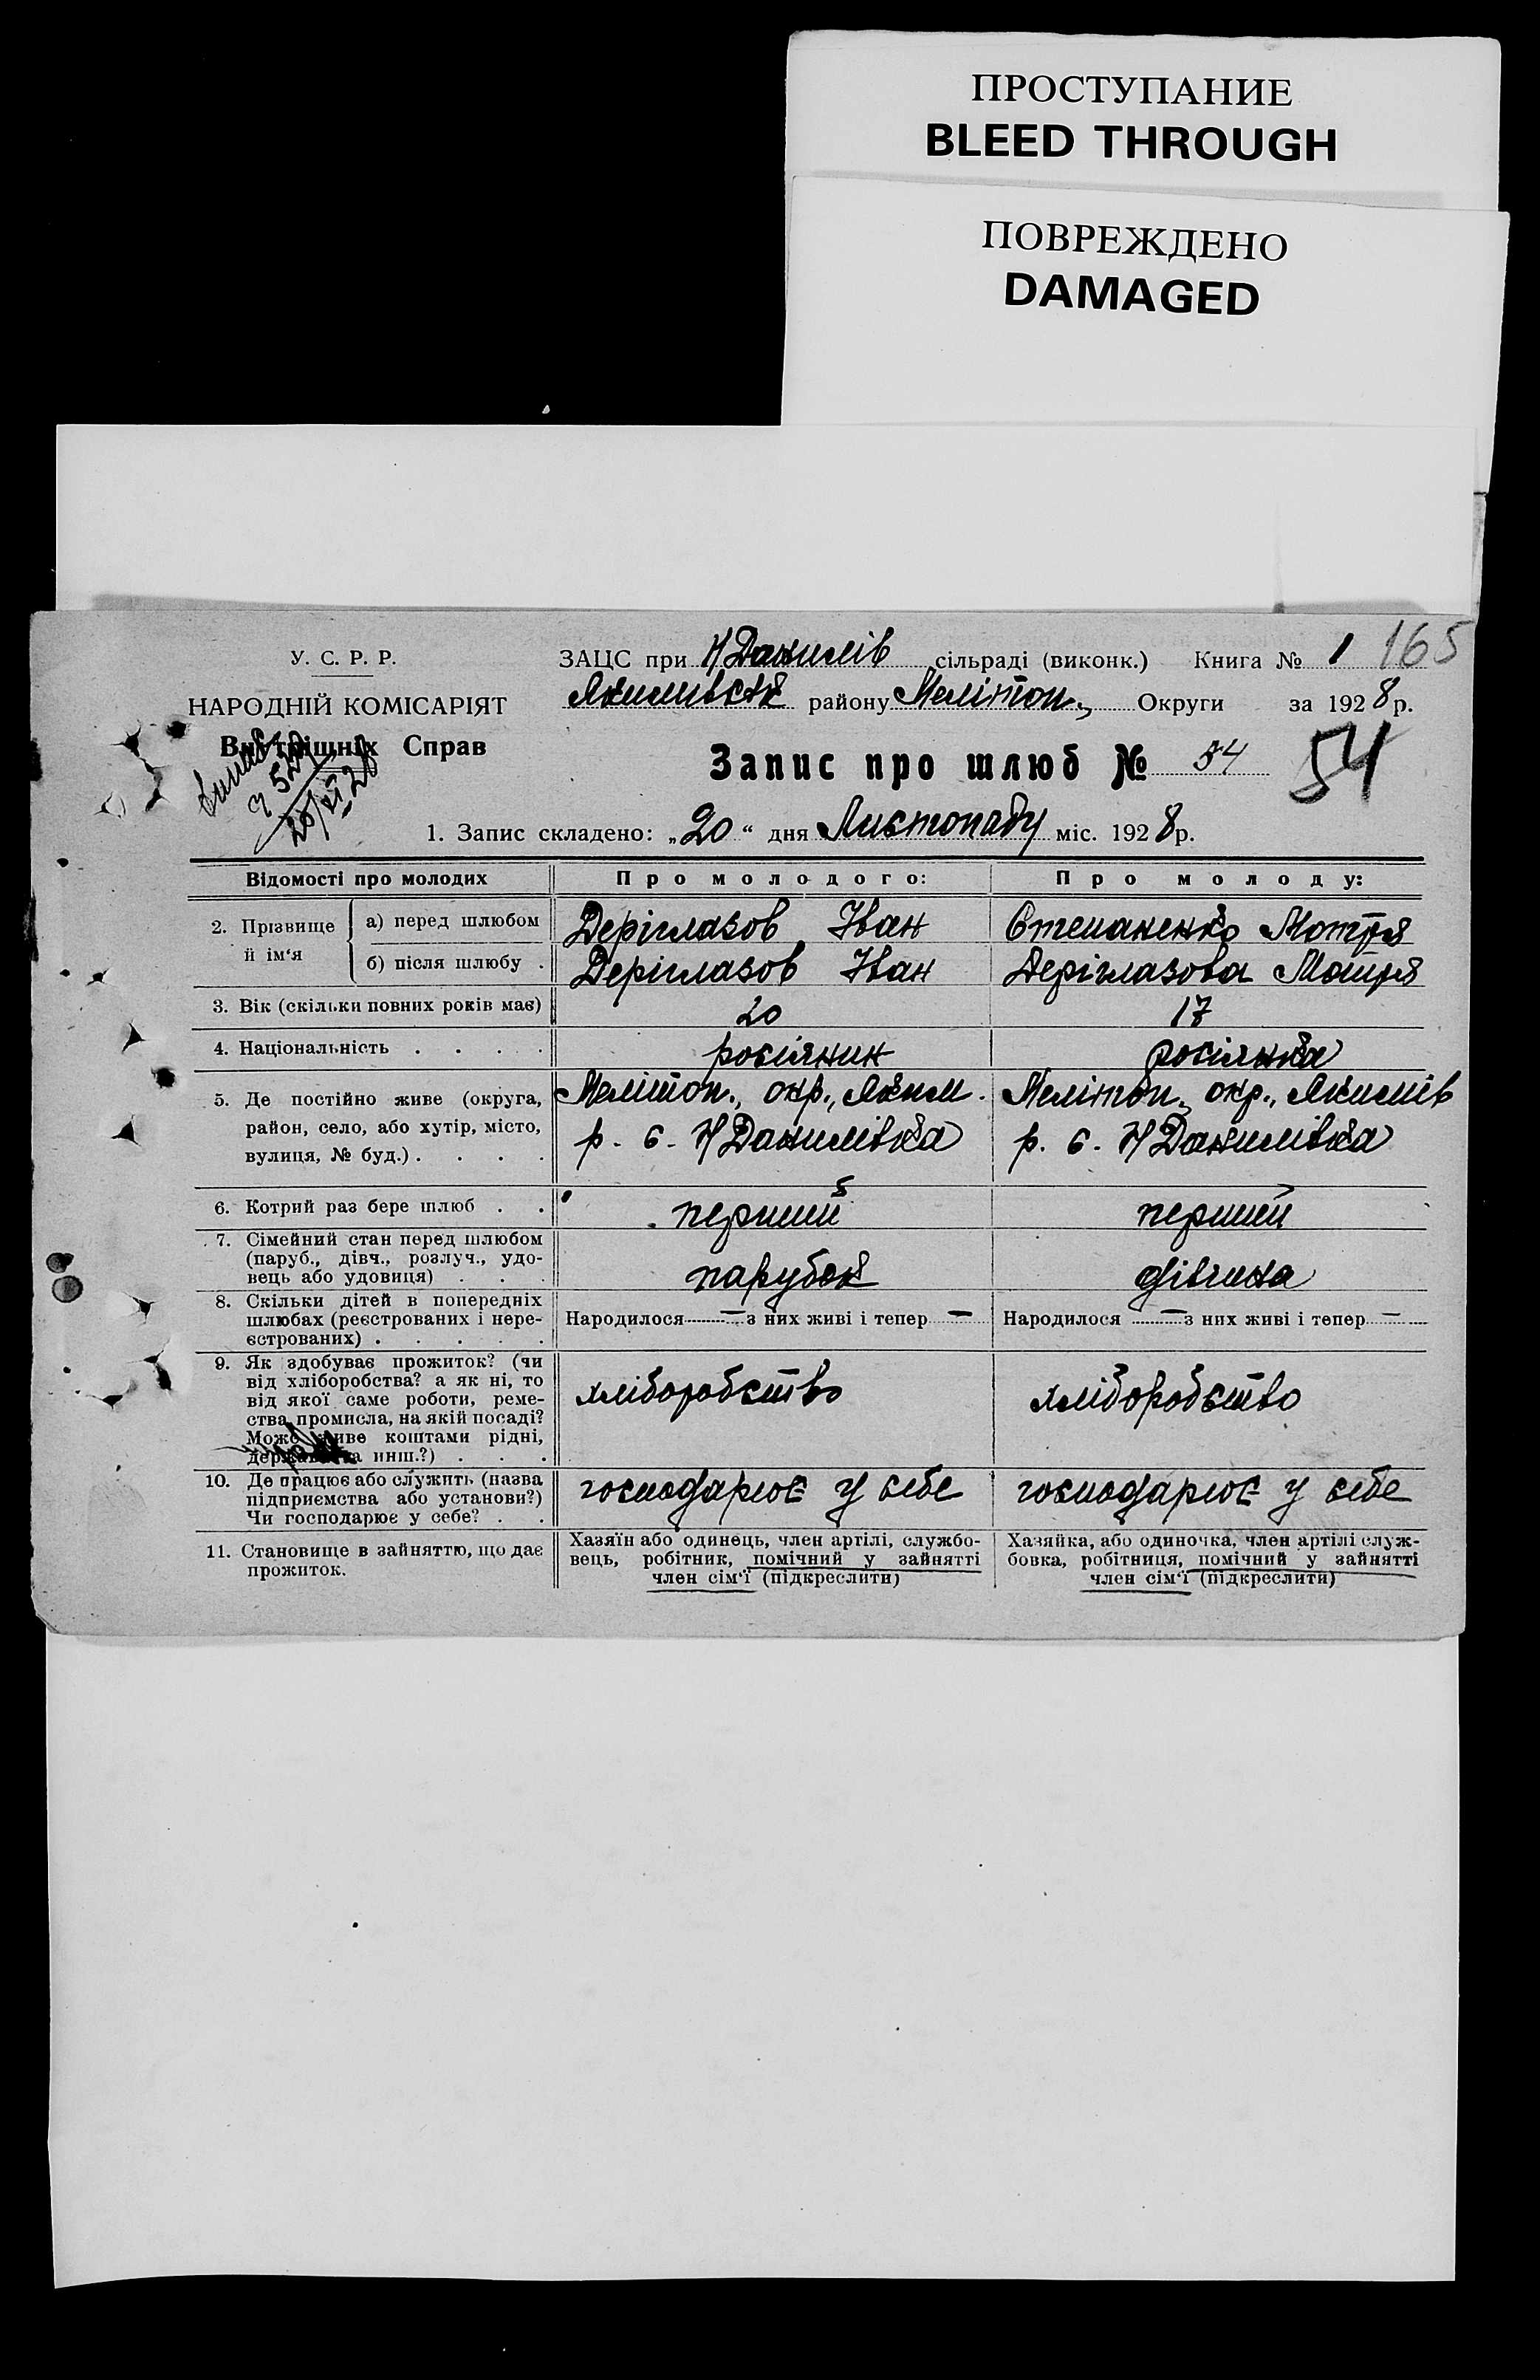 ПРОСТУПАНИЕ
BLEED THROUGH
ПОВРЕЖДЕНО
DAMAGED
165
У. С. Р. Р.
НАРОДНІЙ КОМІСАРІЯТ
Внутрішніх Справ
ЗАЦС при Н Данилів сільраді (виконк.) Книга № 1
Якимівськ району Мелітоп., Округи за 1928 р.
Запис про шлюб № 54
54
1. Запис складено: „20“ дня Листопаду міс. 1928 р.
Відомості про молодих
Про молодого:
Про молоду:
2. Прізвище й ім'я
а) перед шлюбом
Деріглазов Іван
Степаненко Мотря
б) після шлюбу .
Деріглазов Іван
Деріглазова Мотря
3. Вік (скільки повних років має)
20
17
4. Національність . . . .
росіянин
росіянка
5. Де постійно живе (округа,
район, село, або хутір, місто,
вулиця, № буд.) . . . .
Мелітоп., окр., Яким.
р. с. Н Данилівка
Мелітоп., окр., Якимів
р. с. Н Данилівка
6. Котрий раз бере шлюб . .
перший
перший
7. Сімейний стан перед шлюбом
(паруб., дівч., розлуч., удо-
вець або удовиця) . . .
парубок
дівчина
8. Скільки дітей в попередніх
шлюбах (реєстрованих і нере-
єстрованих) . . . . .
Народилося — з них живі і тепер —
Народилося — з них живі і тепер —
9. Як здобуває прожиток? (чи
від хліборобства? а як ні, то
від якої саме роботи, реме-
ства, промисла, на якій посаді?
Може живе коштами рідні,
инш.?) . . .
хліборобство
хліборобство
10. Де працює або служить (назва
підприємства або установи?)
Чи господарює у себе? . .
господарює у себе
господарює у себе
11. Становище в зайняттю, що дає
прожиток.
Хазяїн або одинець, член артілі, службо-
вець, робітник, помічний у зайнятті
член сім'ї (підкреслити)
Хазяйка, або одиночка, член артілі служ-
бовка, робітниця, помічний у зайнятті
член сім'ї (підкреслити)